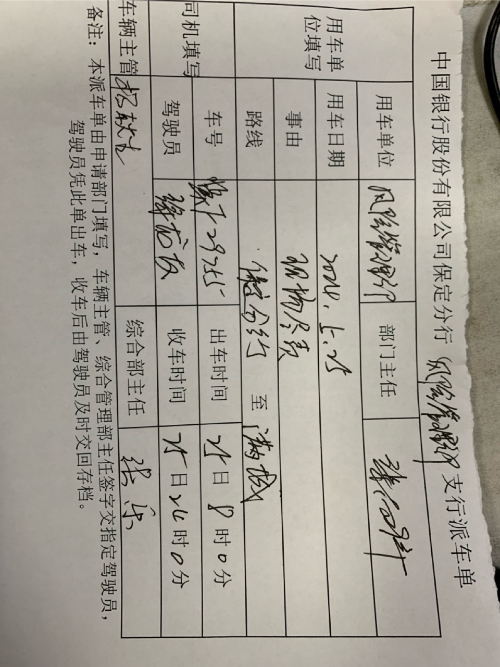 中国银行股份有限公司保定分行 风险管理部 支行派车单
用车单位填写 用车单位 风险管理部 部门主任
用车日期 2024.5.25
事由 现场尽责
路线 保定分行 至 满城
司机填写 车号 出车时间 25日8时0分
驾驶员 收车时间 25日24时0分
车辆主管 综合部主任
备注：本派车单由申请部门填写，车辆主管、综合管理部主任签字交指定驾驶员，
驾驶员凭此单出车，收车后由驾驶员及时交回存档。